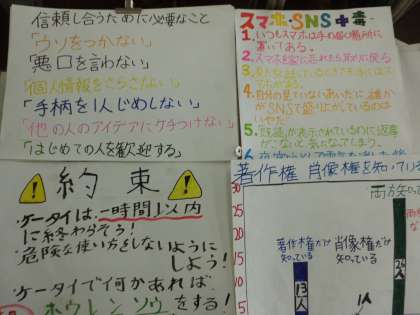 信頼し合うために必要なこと
「ウソをつかない」
「悪口を言わない」
「個人情報をさらさない」
「手柄を1人じめしない」
「他の人のアイデアにケチつけない」
「はじめての人を歓迎する」
スマホ・SNS中毒
1. いつもスマホは手の届く場所に
置いてある。
2. スマホを家に忘れたら取りに戻る
3.
4. 自分の見ていないあいだに誰か
がSNSで盛り上がしているのは
いやだ。
5. 「既読」が表示されているのに返事
がこないと気になってしまう。
約束
ケータイは、一時間以内
に終わらそう!
危険な使い方をしないように
しよう!
ケータイで何かあれば
ホウレンソウをする!
著作権 肖像権を知っている
30
25
20
15
10
5
著作権だけ
知っている
13人
肖像権だけ
知っている